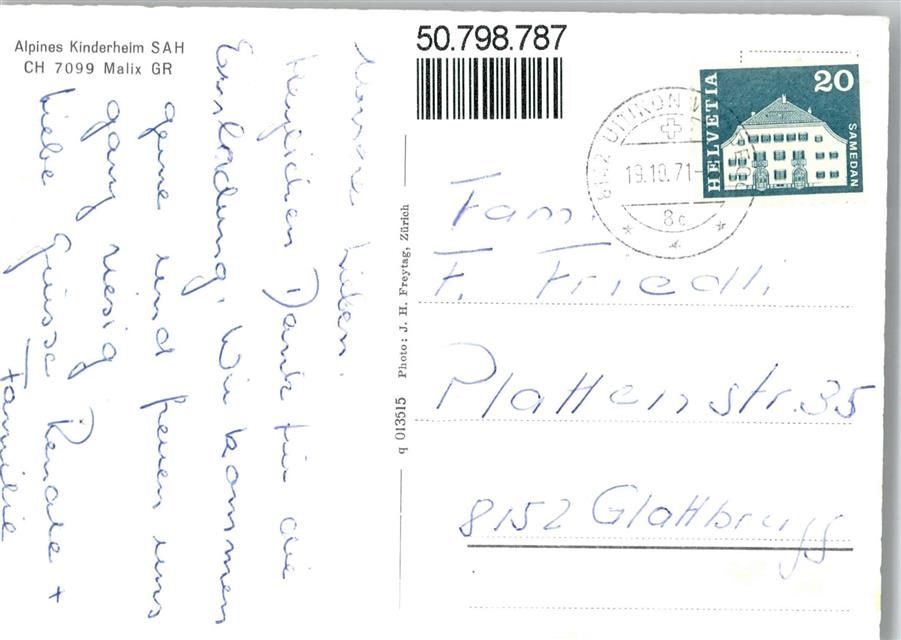 Alpines Kinderheim SAH
CH 7099 Malix GR
Unsere Lieben!
Herzlichen Dank für die
Einladung. Wir kommen
gerne und freuen uns
ganz riesig
Liebe Grüsse Renate +
Familie
q 013515 Photo: J. H. Freytag, Zürich
50.798.787
UITIKON W
19.10.71-
8c
HELVETIA
20
SAMEDAN
Fam.
F. Friedli
Plattenstr. 35
8152 Glattbrugg